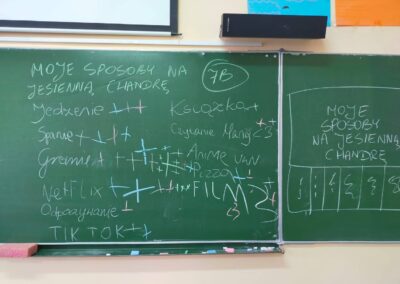 MOJE SPOSOBY NA
JESIENNĄ CHANDRĘ
7B
Jedzenie
Spanie
Granie
NETFLIX
Odpoczywanie
TIK TOK
Książka
Czytanie Mangi <3
Anime
Pizza
FILM
MOJE
SPOSOBY
NA JESIENNĄ
CHANDRĘ